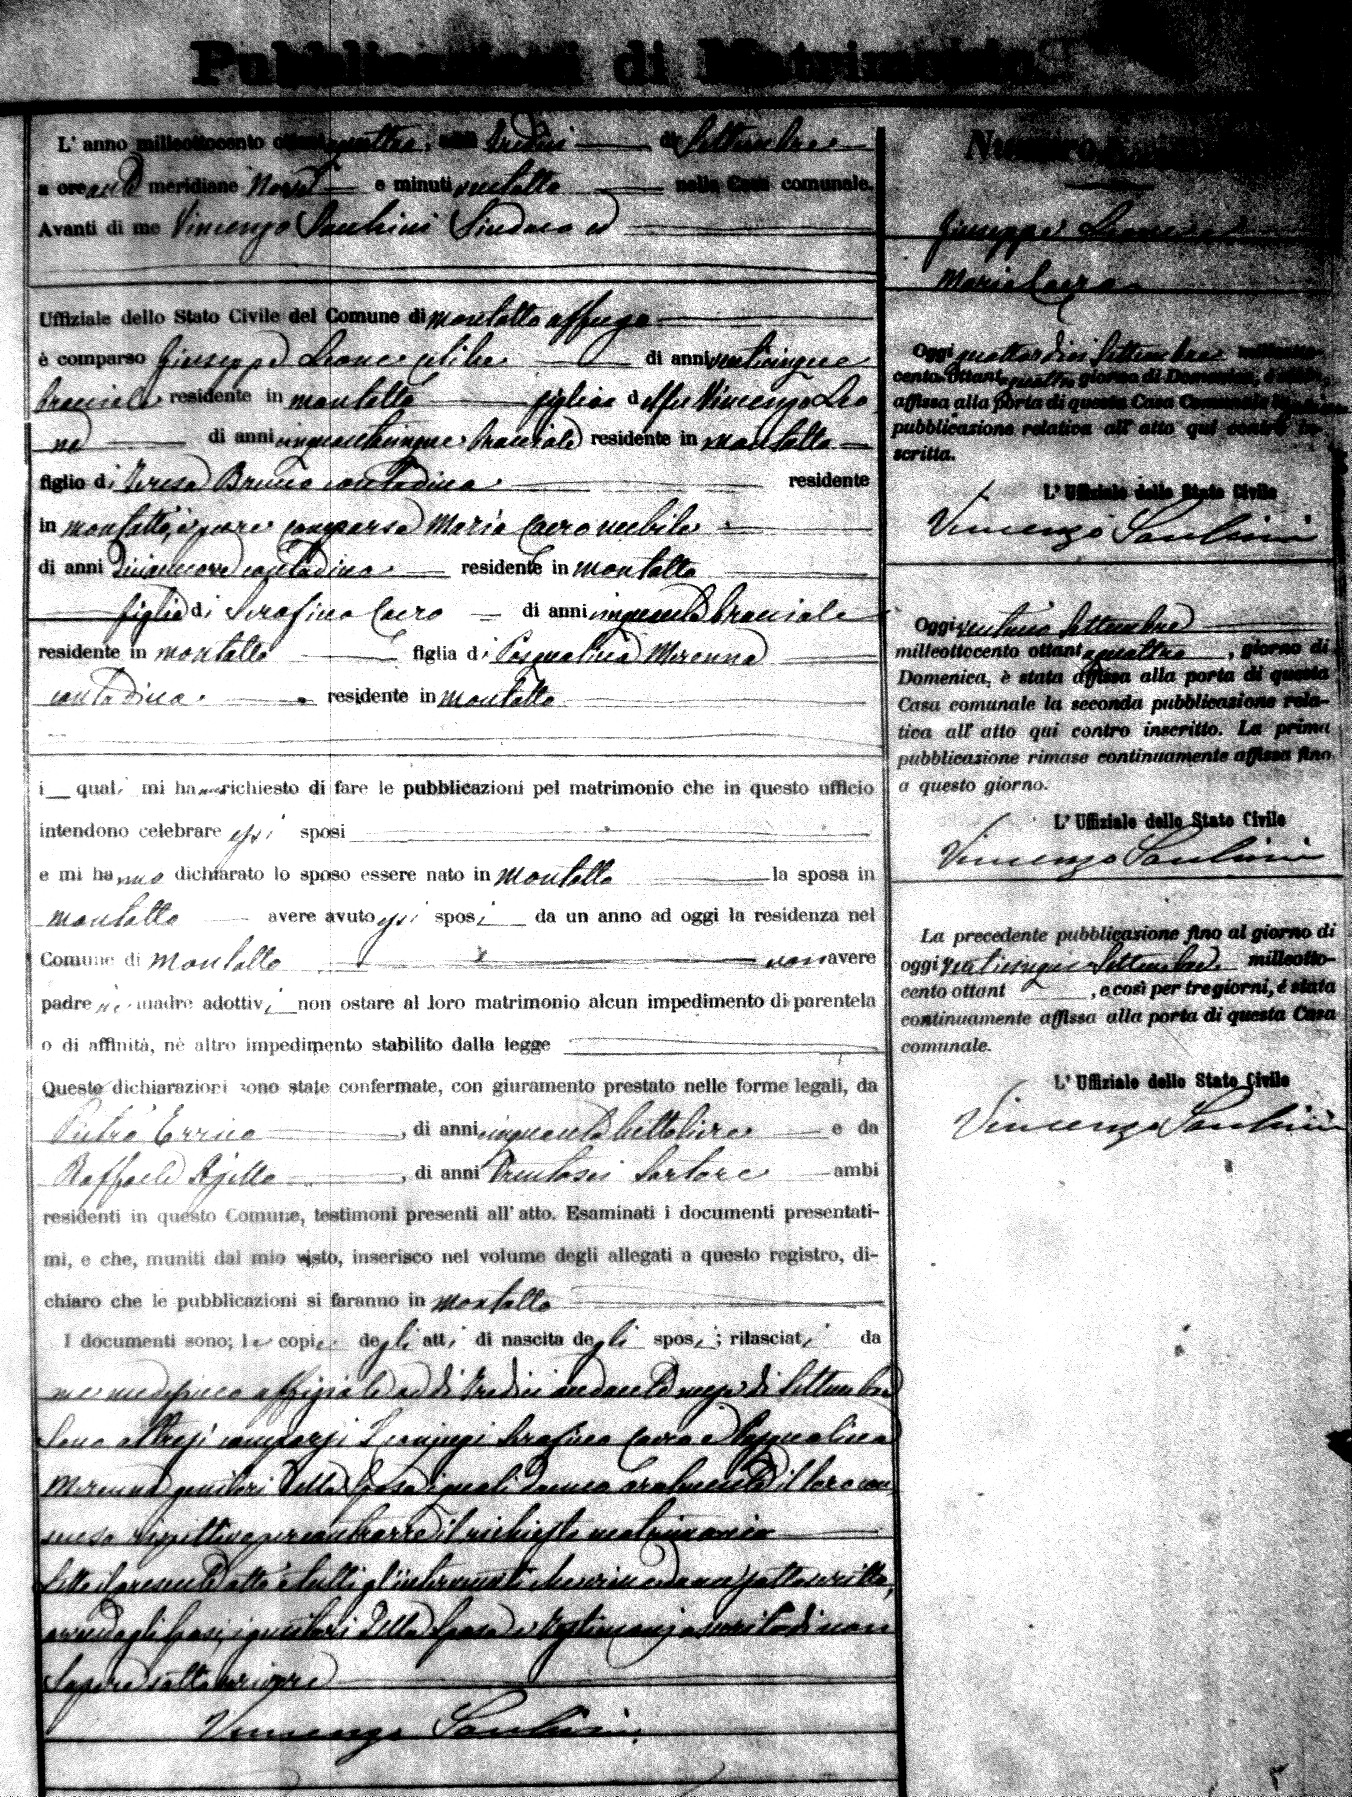 Pubblicazioni di Matrimonio
L' anno milleottocento ottantaquattro, addì tredici di Settembre
a ore anti meridiane nove e minuti ventotto nella Casa comunale.
Avanti di me Vincenzo Sindaco ed
Uffiziale dello Stato Civile del Comune di Montalto Uffugo
è comparso Giuseppe Leone celibe di anni venticinque
bracciale residente in Montalto figlio di Vincenzo Leo
ne di anni cinquantacinque bracciale residente in Montalto
figlio di Teresa Bruno contadina residente
in Montalto, è pure comparsa Maria Caero nubile
di anni diciannove contadina residente in Montalto
figlia di Serafino Caero di anni cinquanta bracciale
residente in Montalto figlia di Pasqualina Merenna
contadina residente in Montalto
i quali mi hanno richiesto di fare le pubblicazioni pel matrimonio che in questo ufficio
intendono celebrare essi sposi
e mi hanno dichiarato lo sposo essere nato in Montalto la sposa in
Montalto avere avuto essi sposi da un anno ad oggi la residenza nel
Comune di Montalto non avere
padre nè madre adottivi non ostare al loro matrimonio alcun impedimento di parentela
o di affinità, nè altro impedimento stabilito dalla legge
Queste dichiarazioni sono state confermate, con giuramento prestato nelle forme legali, da
Pietro Errico, di anni cinquanta bettoliere e da
Raffaele Ajello, di anni trentasei Sartore ambi
residenti in questo Comune, testimoni presenti all' atto. Esaminati i documenti presentati-
mi, e che, muniti dal mio visto, inserisco nel volume degli allegati a questo registro, di-
chiaro che le pubblicazioni si faranno in Montalto
I documenti sono; le copie degli atti di nascita degli sposi; rilasciati da
me medesimo uffiziale addì tredici andante mese di Settembre
Sono altresì comparsi i coniugi Serafino Caero e Pasqualina
Merenna genitori della sposa i quali danno oralmente il loro con
senso rispettivo per contrarre il richiesto matrimonio
Letto il presente atto a tutti gl'intervenuti che viene da me sottoscritto,
avendo gli sposi, i genitori della sposa e testimonj asserito di non
sapere sottoscrivere
Vincenzo
Numero
Giuseppe Leone ed
Maria Caero
Oggi quattordici Settembre milleotto-
cento ottantaquattro giorno di Domenica, è stata
affissa alla porta di questa Casa Comunale
pubblicazione relativa all' atto qui contro in-
scritta.
L' Uffiziale dello Stato Civile
Vincenzo
Oggi ventuno Settembre
milleottocento ottantaquattro, giorno di
Domenica, è stata affissa alla porta di questa
Casa comunale la seconda pubblicazione rela-
tiva all' atto qui contro inscritto. La prima
pubblicazione rimase continuamente affissa fino
a questo giorno.
L' Uffiziale dello Stato Civile
Vincenzo
La precedente pubblicazione fino al giorno di
oggi venticinque Settembre milleotto-
cento ottant , e così per tre giorni, é stata
continuamente affissa alla porta di questa Casa
comunale.
L' Uffiziale dello Stato Civile
Vincenzo